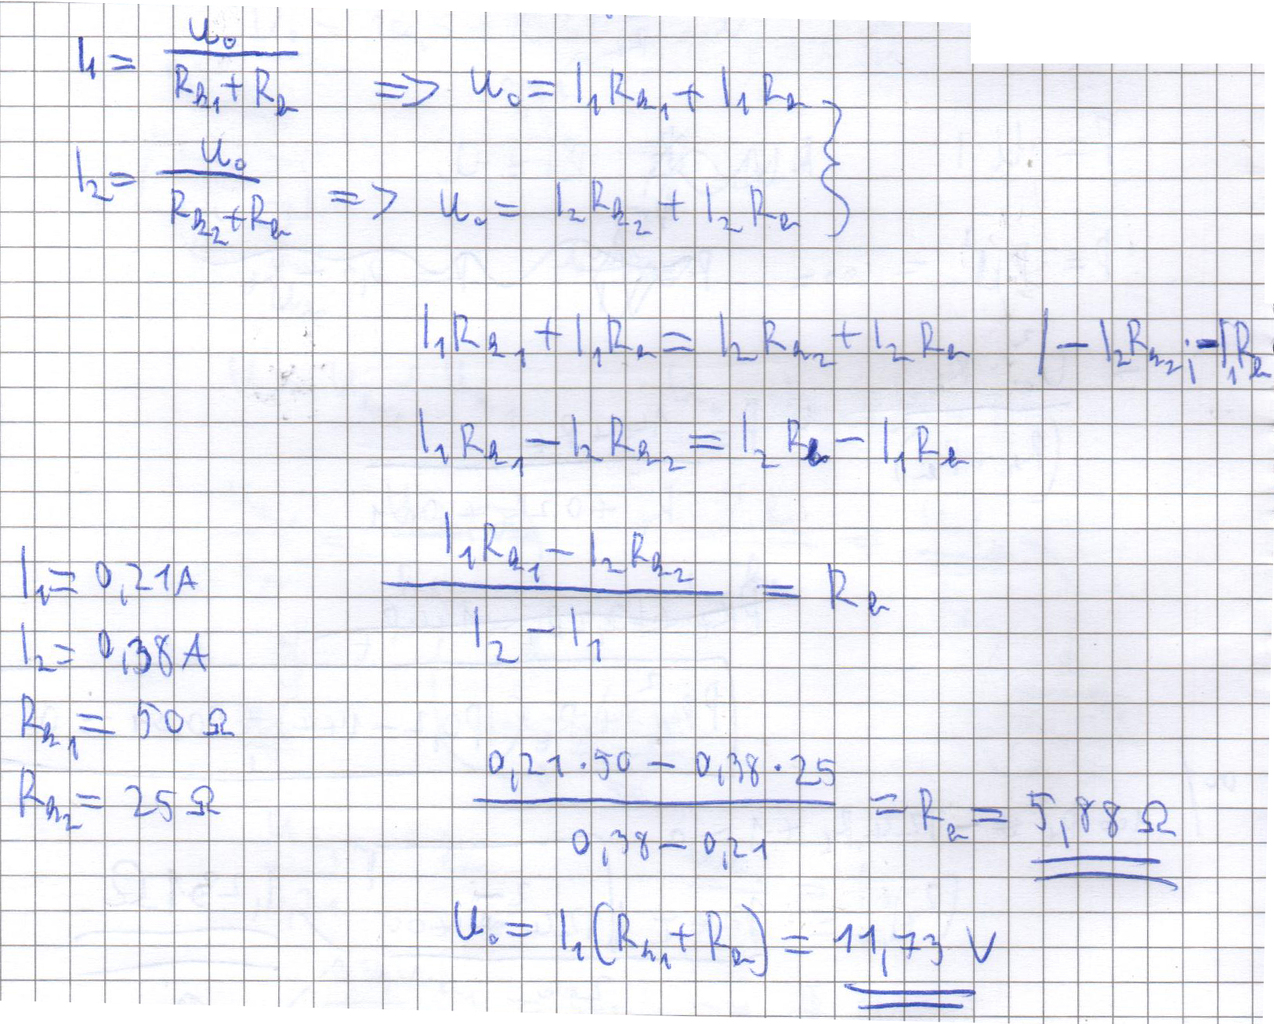 I₁ = U₀ / (Rk₁ + Rb) => U₀ = I₁Rk₁ + I₁Rb
I₂ = U₀ / (Rk₂ + Rb) => U₀ = I₂Rk₂ + I₂Rb }
I₁Rk₁ + I₁Rb = I₂Rk₂ + I₂Rb | - I₂Rk₂; - I₁Rb
I₁Rk₁ - I₂Rk₂ = I₂Rb - I₁Rb
(I₁Rk₁ - I₂Rk₂) / (I₂ - I₁) = Rb
I₁ = 0,21A
I₂ = 0,38A
Rk₁ = 50 Ω
Rk₂ = 25 Ω
(0,21·50 - 0,38·25) / (0,38 - 0,21) = Rb = 5,88 Ω
U₀ = I₁(Rk₁ + Rb) = 11,73 V